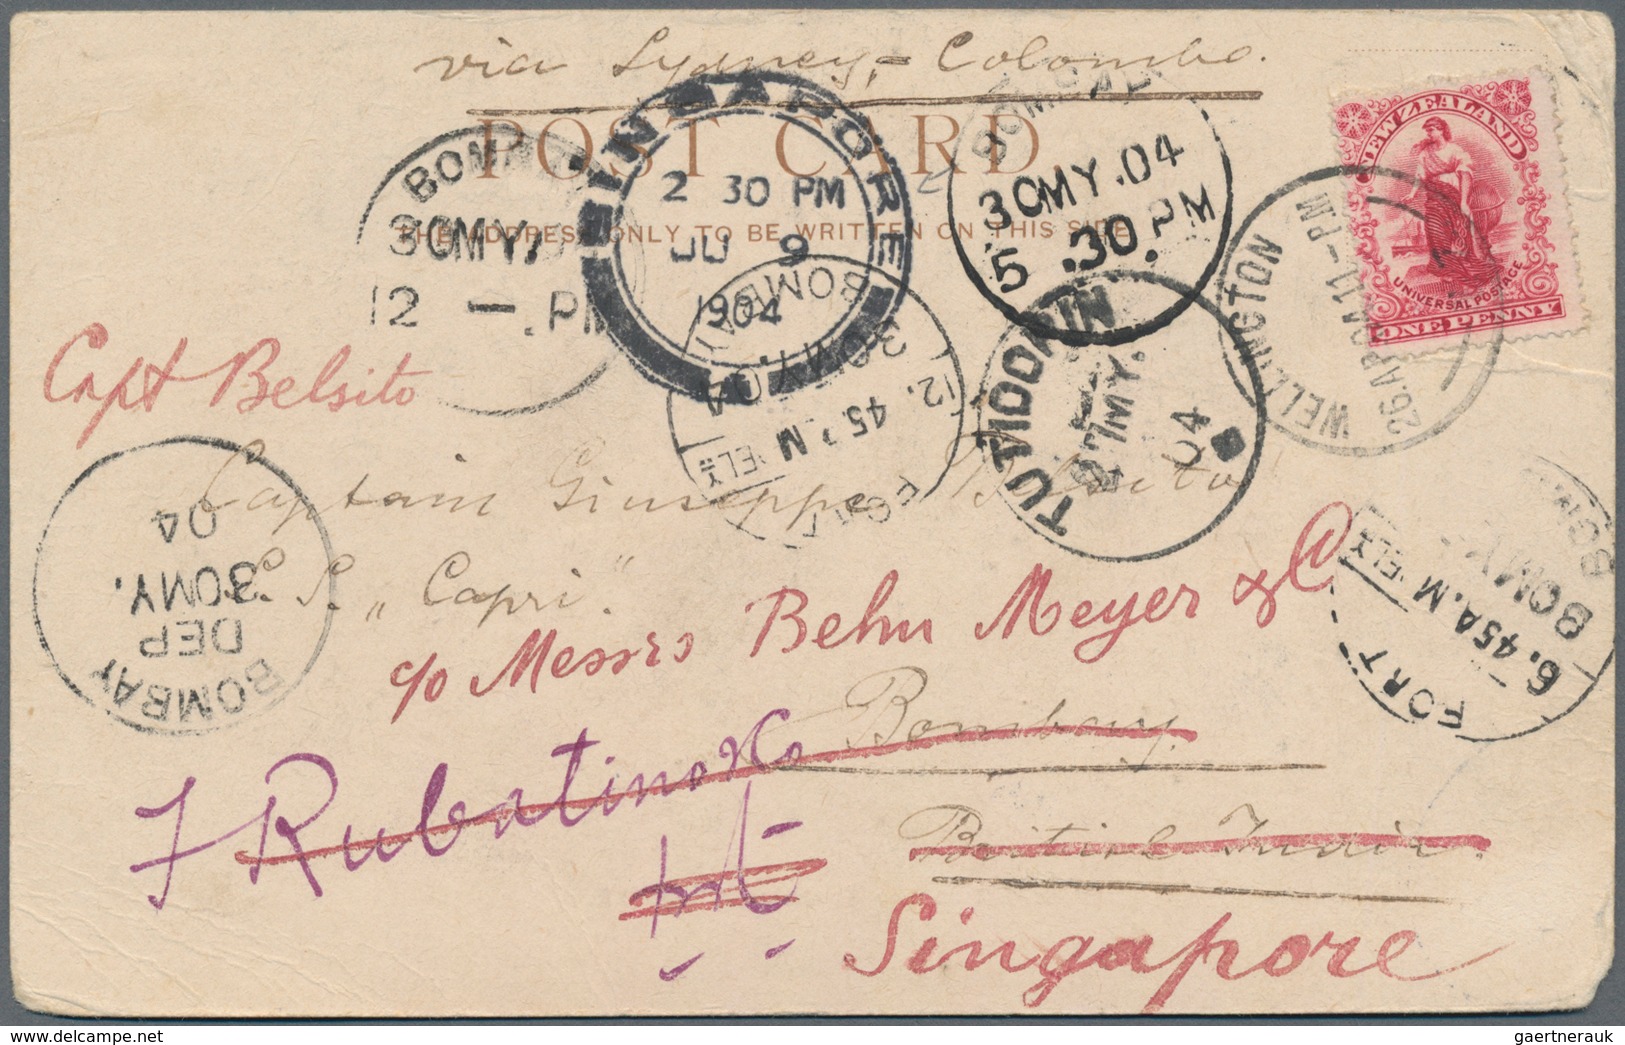 via Sydney, - Colombo.
POST CARD
THE ADDRESS ONLY TO BE WRITTEN ON THIS SIDE
NEW ZEALAND
UNIVERSAL POSTAGE
ONE PENNY
WELLINGTON
26.AP.04.11-PM
BOMBAY
30MY.
12 - .PM
SINGAPORE
2 30 PM
JU 9
1904
BOMBAY
30MY.04
5 .30.PM
BOMBAY
30MY.04
12. 45P.M
DELY
FORT
TUTICORIN
27MY.
04
BOMBAY
30MY.
6.45A.M
DELY
FORT
BOMBAY
DEP
30MY.
04
Capt Belsito
Captain Giuseppe Belsito
S. S. „Capri."
c/o Messrs Behn Meyer & Co
Bombay.
Rubatino & Co
British India.
Singapore
delcampe.net
gaertnerauk